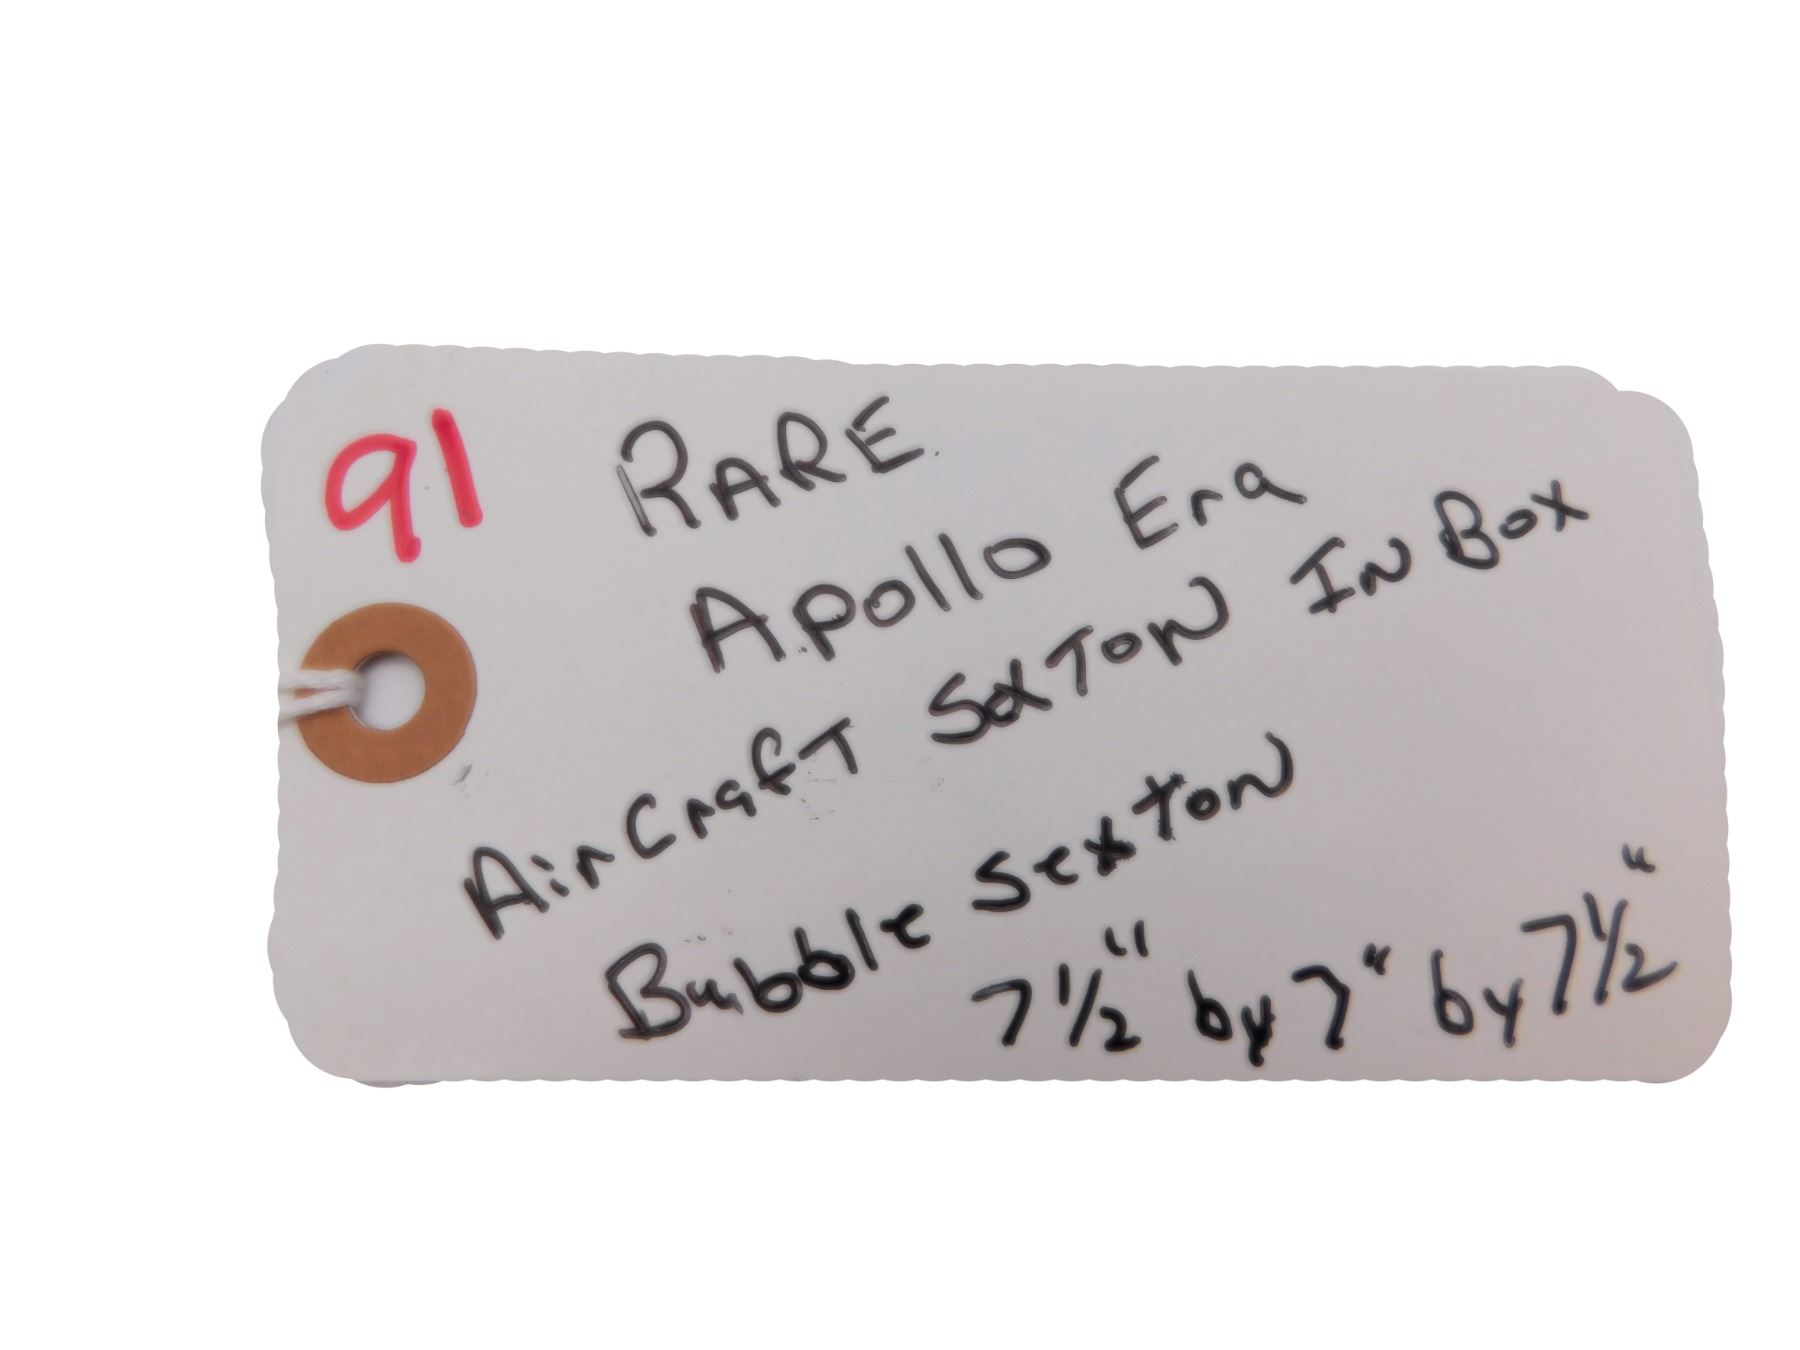 91 RARE
Apollo Era
AirCrafT SexTon In Box
Bubble Sexton
7 1/2" by 7" by 7 1/2"